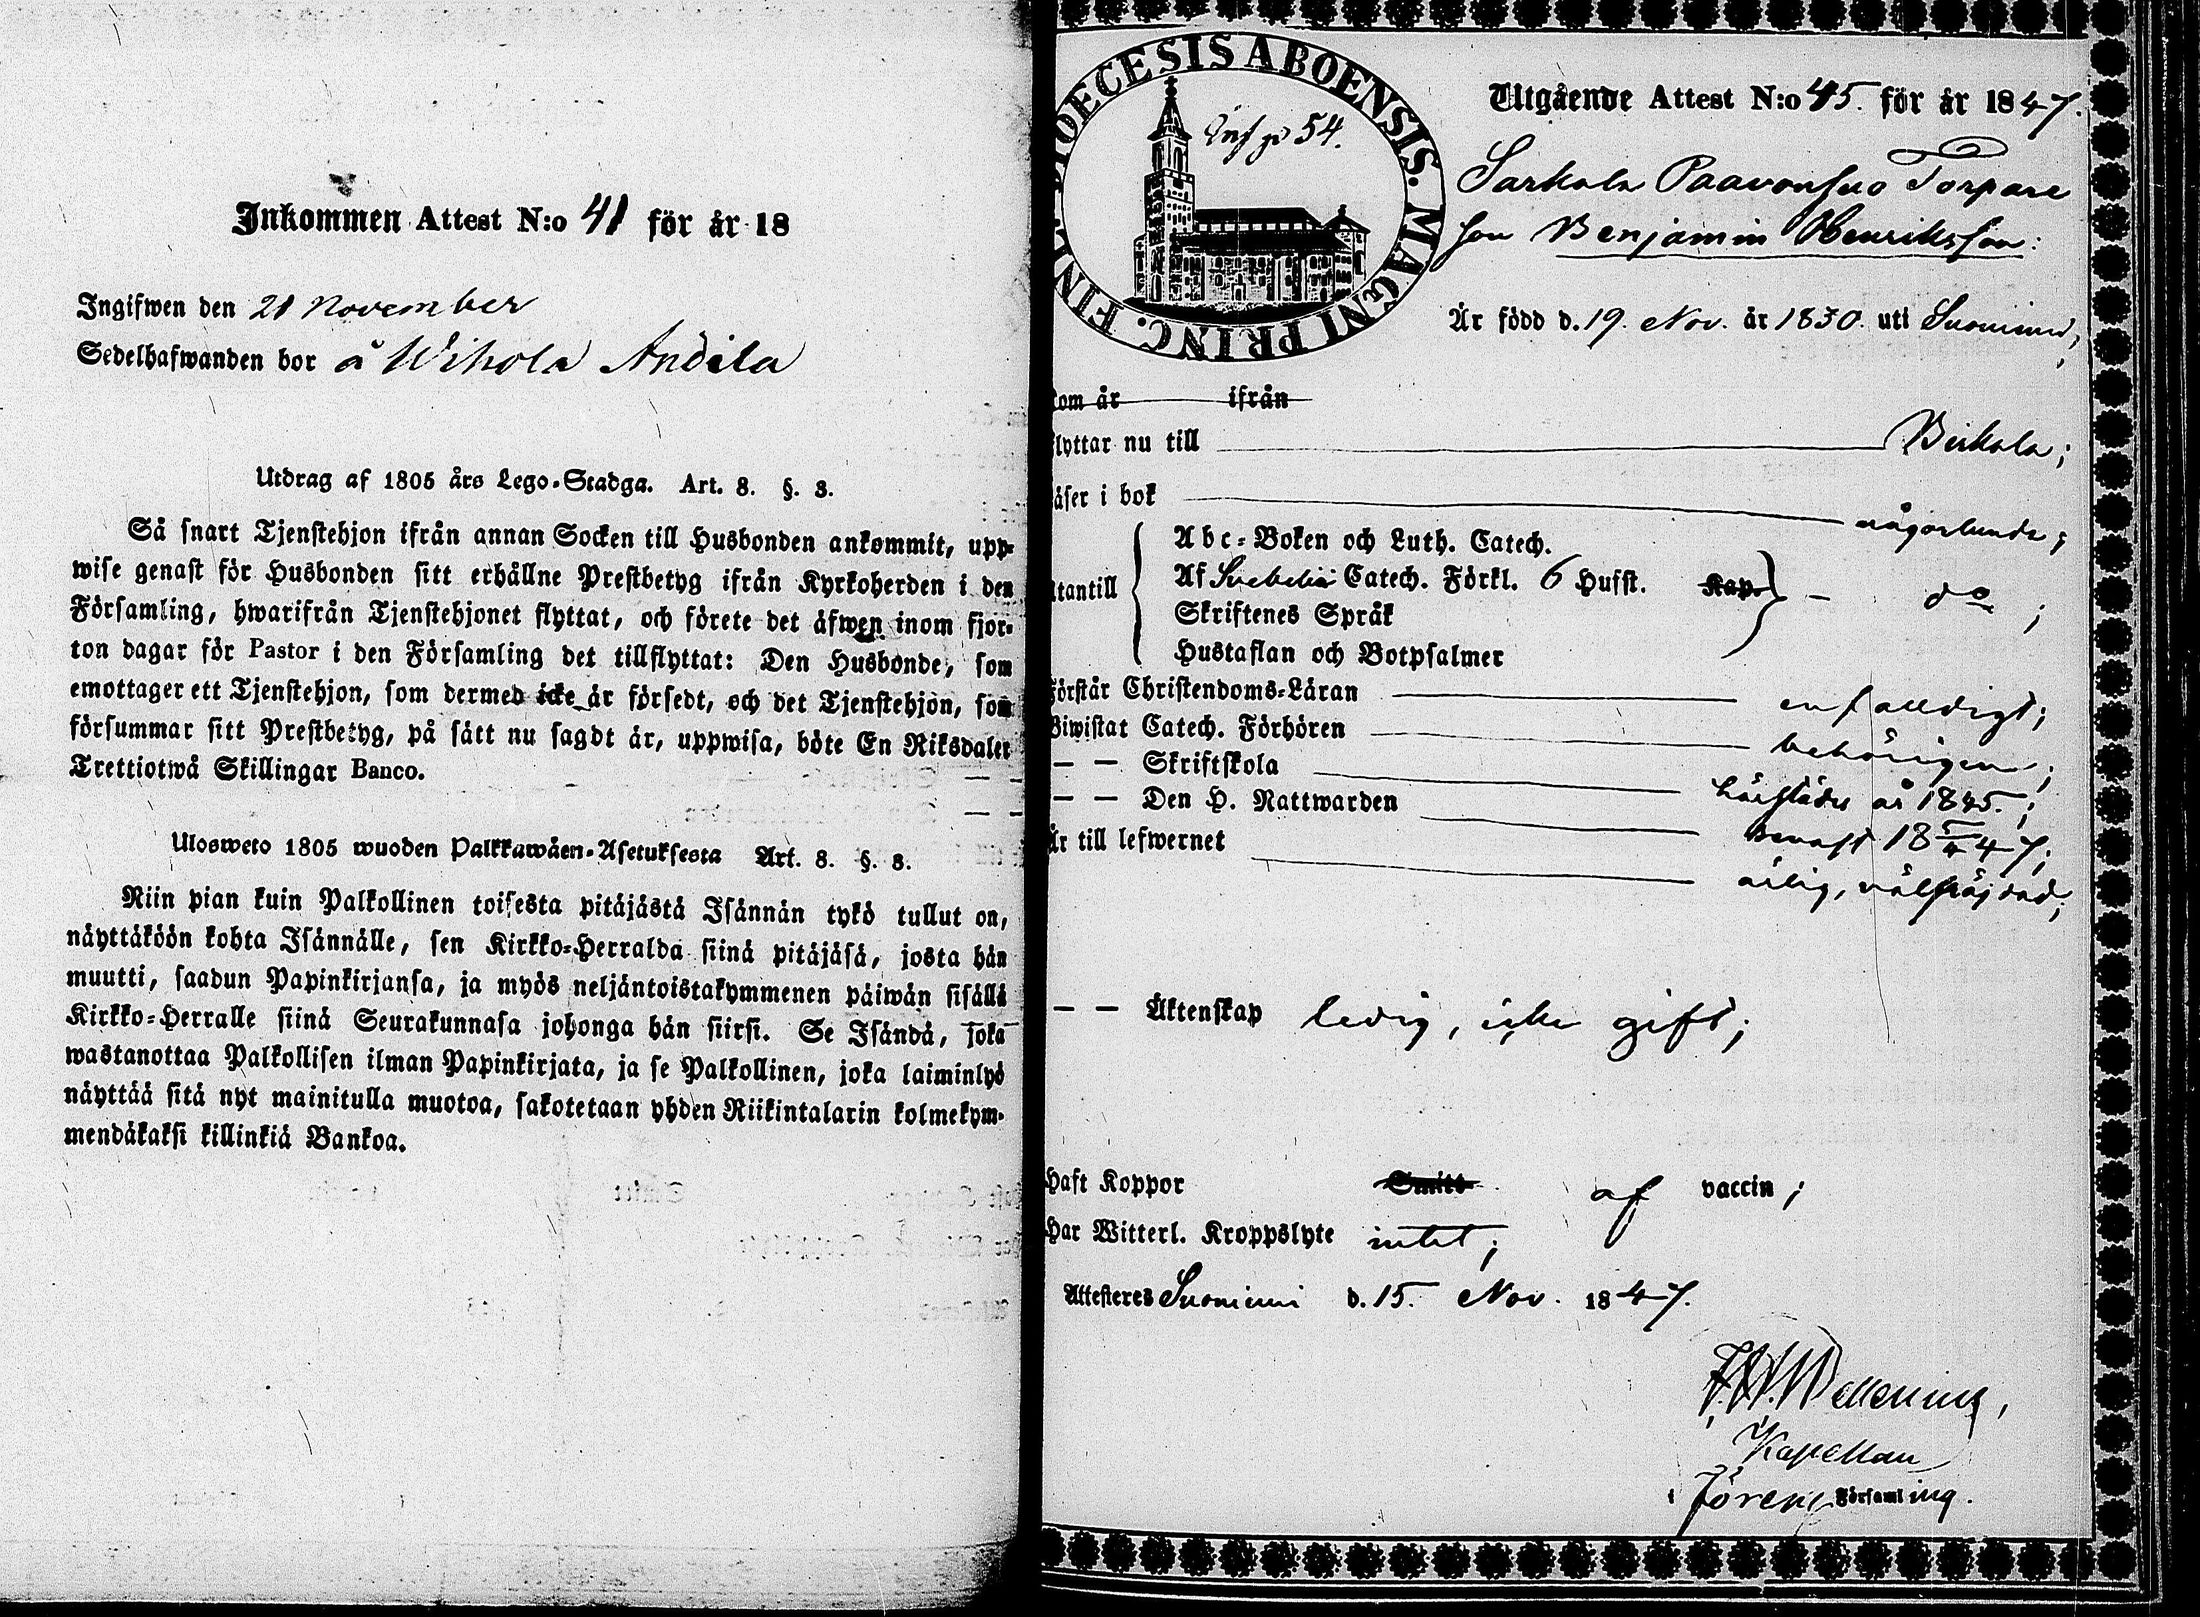 Inkommen Attest N:o 41 för år 18
Ingifwen den 21 November
Sedelhafwanden bor å Wihola Andila
Utdrag af 1805 års Lego-Stadga. Art. 8. §. 3.
Så snart Tjenstehjon ifrån annan Socken till Husbonden ankommit, upp-
wise genast för Husbonden sitt erhållne Prestbetyg ifrån Kyrkoherden i den
Församling, hwarifrån Tjenstehjonet flyttat, och förete det äfwen inom fjor-
ton dagar för Pastor i den Församling det tillflyttat: Den Husbonde, som
emottager ett Tjenstehjon, som dermed icke är försedt, och det Tjenstehjon, som
försummar sitt Prestbetyg, på sätt nu sagdt är, uppwisa, böte En Riksdaler
Trettiotwå Skillingar Banco.
Ulosweto 1805 wuoden Palkkawäen-Asetuksesta Art. 8. §. 3.
Niin pian kuin Palkollinen toisesta pitäjästä Isännän tykö tullut on,
näyttäköön kohta Isännälle, sen Kirkko-Herralda siinä pitäjäsä, josta hän
muutti, saadun Papinkirjansa, ja myös neljäntoistakymmenen päiwän sisällä
Kirkko-Herralle siinä Seurakunnasa johonga hän siirsi. Se Isändä, joka
wastanottaa Palkollisen ilman Papinkirjata, ja se Palkollinen, joka laiminlyö
näyttää sitä nyt mainitulla muotoa, sakotetaan yhden Riikintalarin kolmekym-
mendäkaksi killinkiä Bankoa.
FINL. DIOECESIS ABOENSIS. MAGNI PRINC.
Inf p 54.
Utgående Attest N:o 45. för år 1847.
Sarkola Paavonsuo Torpare
son Benjamin Henriksson:
Är född d. 19. Nov. år 1830. uti Suoniemi;
kom år ifrån
flyttar nu till Birkala;
läser i bok någorlunda;
Utantill
Abc-Boken och Luth. Catech.
Af Svebelii Catech. Förkl. 6 Hufst. Kap. d:o;
Skriftenes Språk
Hustaflan och Botpsalmer
Förstår Christendoms-Läran enfalldigt;
Biwistat Catech. Förhören behörigen;
— — Skriftskola härstädes år 1845.;
— — Den H. Nattwarden senast 18 5/4 47;
Är till lefwernet ärlig, välfräjdad;
— — Äktenskap ledig, icke gift;
Haft Koppor Smitt af vaccin;
Har Witterl. Kroppslyte intet;
Attesteres Suoniemi d. 15. Nov. 1847.
Kapellan
i Församling.